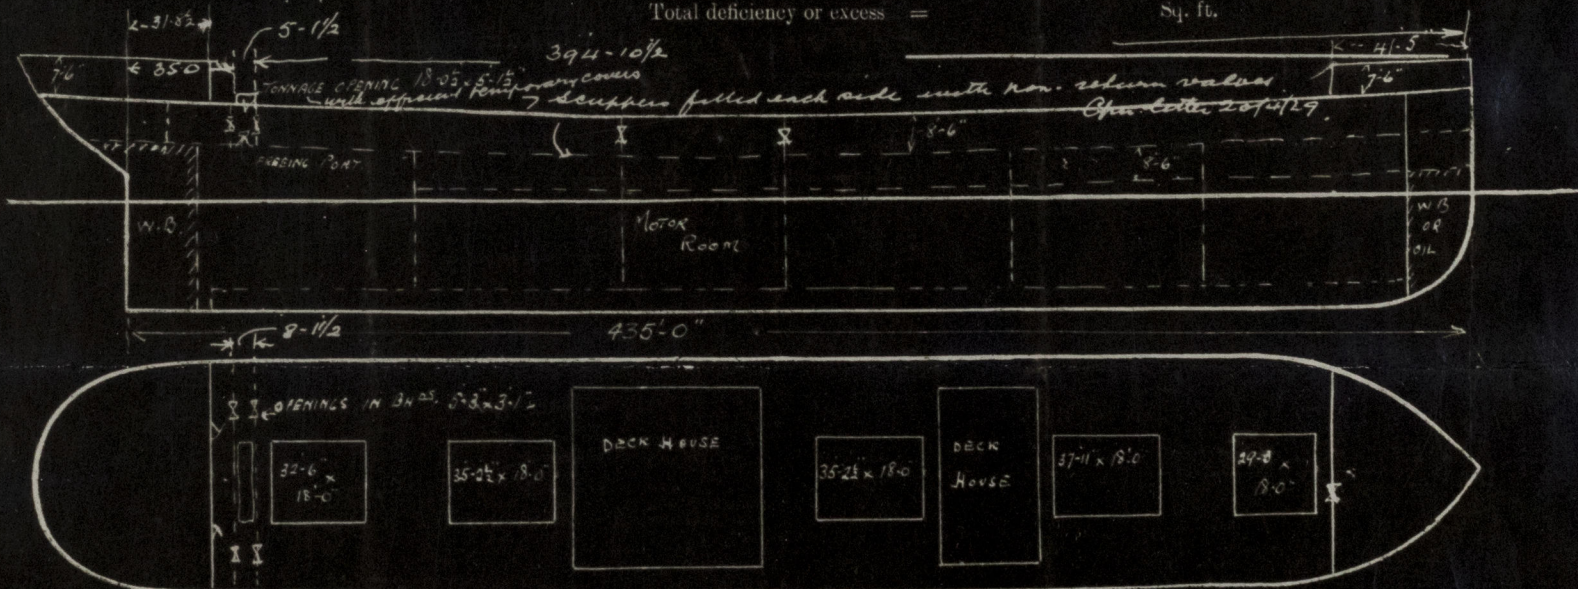 Total deficiency or excess = Sq. ft.
L-31-8½
5-1½
394-10½
41-5"
7-6"
350
TONNAGE OPENING 18-0½ x 5-1½"
with approved temporary covers
7 Scuppers fitted each side with non-return valves
7-6"
letter 20/4/29.
8-6"
FREEING PORT
8-6"
W.B.
MOTOR
ROOM
W B
OR
OIL
8-11½
435-0"
OPENINGS IN BHDS.
DECK HOUSE
DECK
HOUSE
32-6" x
18-0"
35-2½ x 18-0"
35-2½ x 18-0"
37-11" x 18-0
29-0 x
18-0"